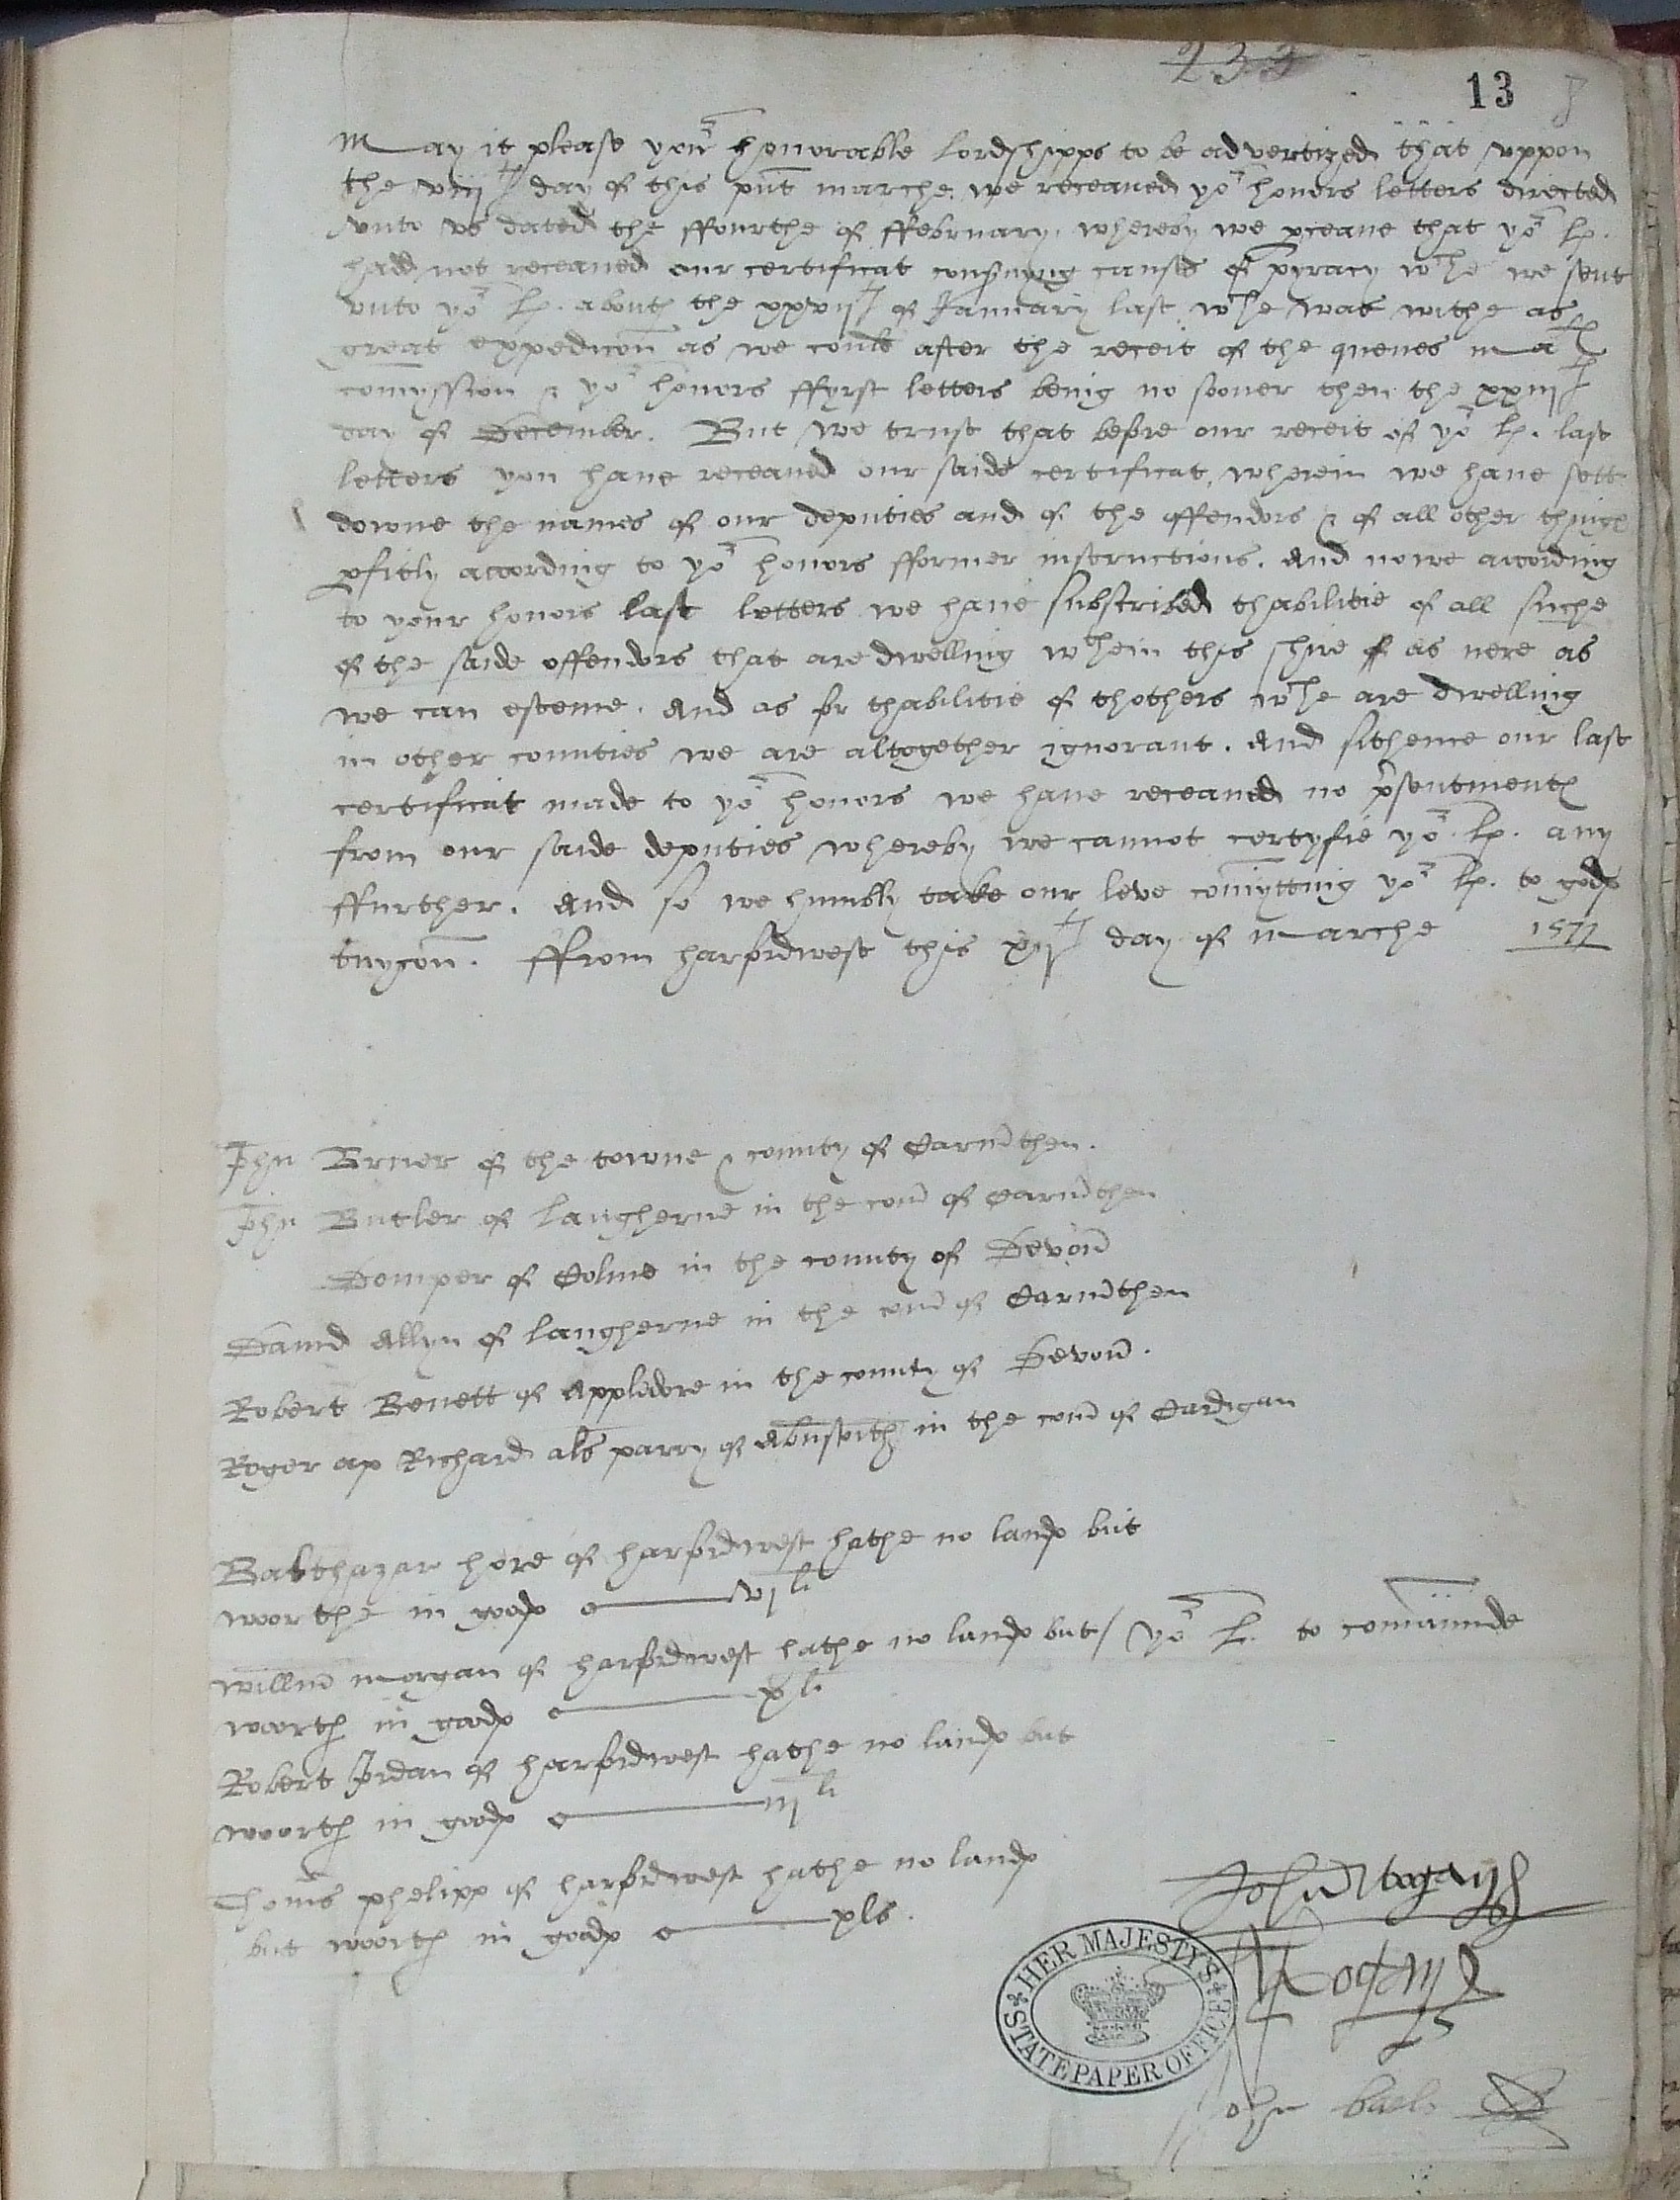 239
13
May it please yor honorable Lordshipps to be advertized that vppon
the viijth day of this pnt marche we receaued yor honors letters directed
vnto vs dated the ffourthe of ffebruary. whereby we pceaue that yor Lp.
hadd not receaued our certificat consernyng causes of pyracy wche we sent
vnto yor Lp. about the xxvijth of January last wche was withe as
great expedicon as we could after the receit of the quenes mats
comyssion & yor honors ffyrst letters being no sooner then the xxiijth
day of December. But we trust that before our receit of yor Lp. last
letters you haue receaued our saide certificat, wherein we haue sett
downe the names of our deputies and of the offendors & of all other things
pfitly according to yor honors fformer instructions. And nowe according
to your honors last letters we haue subscribed thabilitie of all suche
of the saide offendors that are dwelling wthein this shire as nere as
we can esteme. And as for thabilitie of thothers wche are dwelling
in other counties we are altogether ignorant. And sithence our last
certificat made to yor honors we haue receaued no psentmentes
from our saide deputies whereby we cannot certyfie yor Lp. any
ffurther. And so we humbly take our leve comyttinig yor Lp. to gods
tuycon. ffrom harfordwest this xijth day of Marche 1577
John Bruer of the towne & county of Carmthen.
John Butler of Laugherne in the coun of Carmthen
Semper of Colme in the county of Devon
Dauid Allyn of Laugherne in the coun of Carmthen
Robert Benett of Appledore in the county of Devon.
Roger ap Richard als parry of Abustwith in the coun of Cardigan
Balthazar hore of harfordwest hathe no lands but
woorthe in goods vjli
Willm morgan of harfordwest hathe no lands but / yor L. to comaunde
woorth in goods xli
Robert Jordan of harfordwest hathe no lands but
woorth in goods iijli
Thoms phelipp of harfordwest hathe no lands
but woorth in goods xls.
John Wogan
HER MAJESTY'S
STATE PAPER OFFICE
John